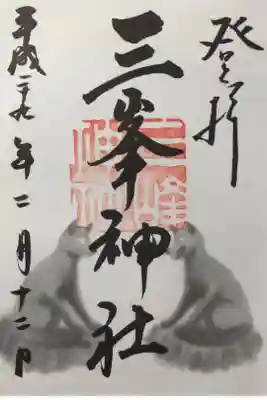 登拝
三峯神社
平成二十九年二月十二日